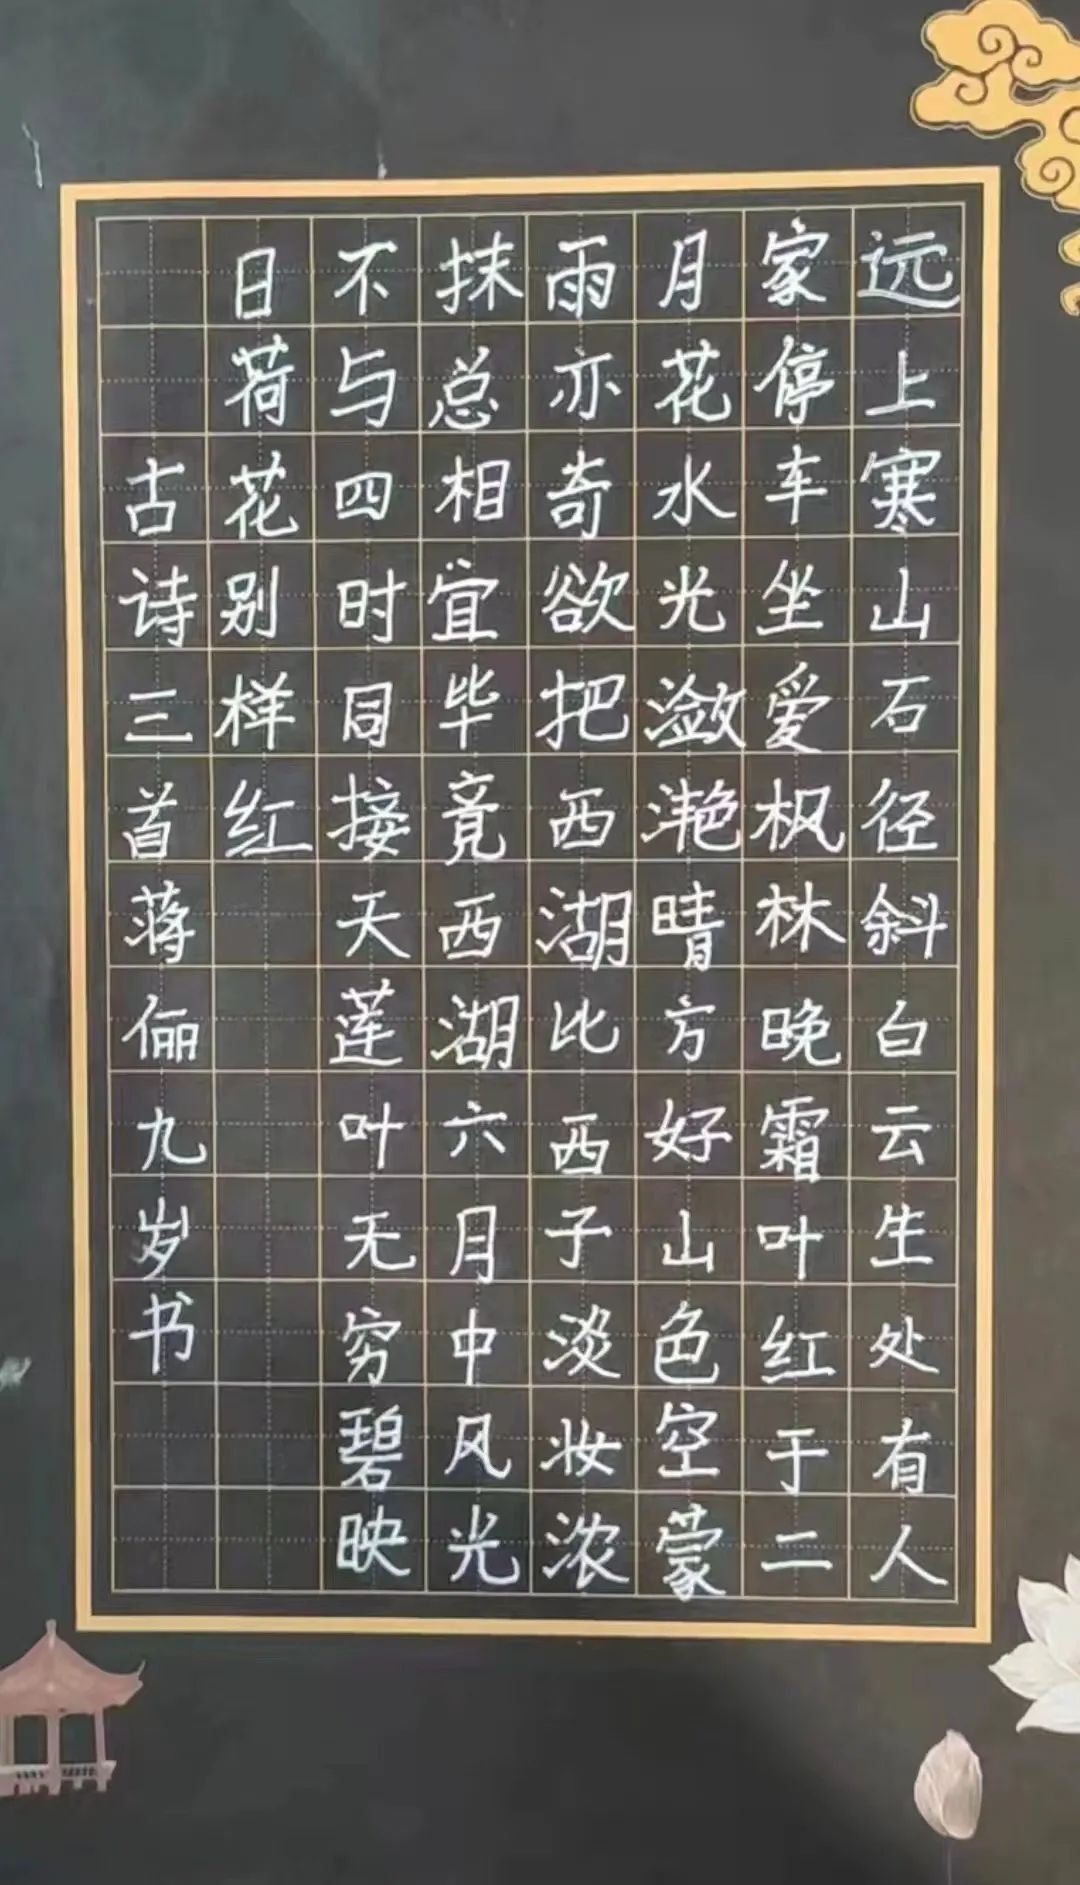 远上寒山石径斜白云生处有人
家停车坐爱枫林晚霜叶红于二
月花水光潋滟晴方好山色空蒙
雨亦奇欲把西湖比西子淡妆浓
抹总相宜毕竟西湖六月中风光
不与四时同接天莲叶无穷碧映
日荷花别样红
古诗三首蒋俪九岁书